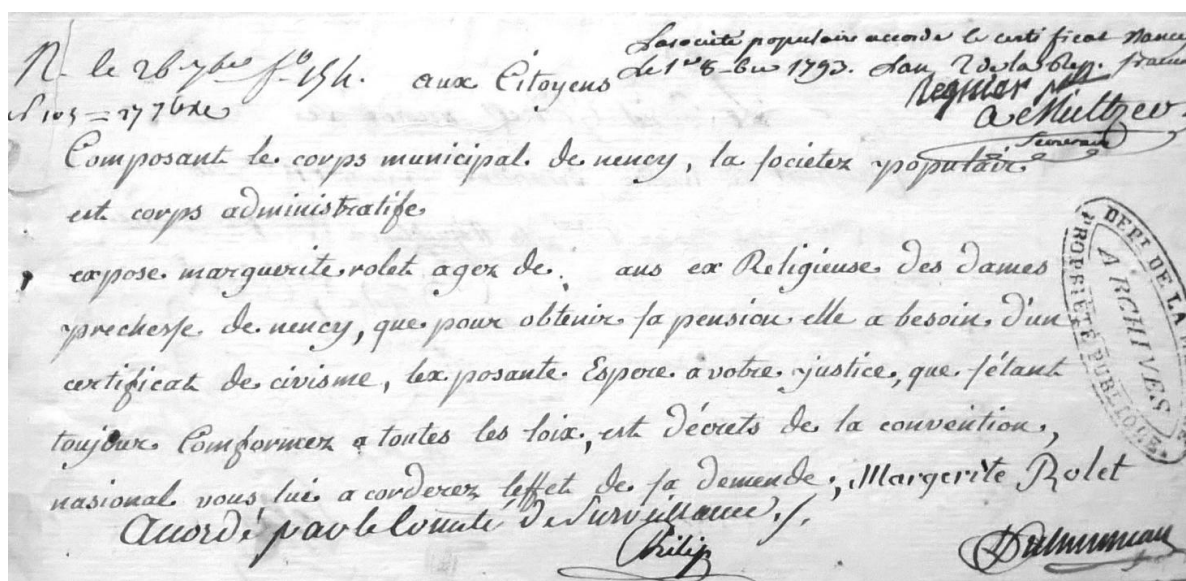 R. le 26 7bre fo 154.
No 103 = 27 7bre
La société populaire accorde le certificat Nancy
le 1er 8-bre 1793. L'an 2 de la Rep. francse
Regnier
Secretaire
aux Citoyens
Composant le corps municipal de nency, la societez populair
est corps administratife
expose marguerite rolet agez de ans ex Religieuse des dames
prechesse de nency, que pour obtenir sa pension elle a besoin d'un
certificat de civisme, lexposante Espere a votre justice, que s'étant
toujour Comformez a toutes les loix, est décrets de la convention,
nasional vous lui acorderez leffet de sa demende, Margerite Rolet
Accordé par le Comité de Surveillance ./.
Philip
DEPT DE LA
ARCHIVES
PROPRIÉTÉ PUBLIQUE